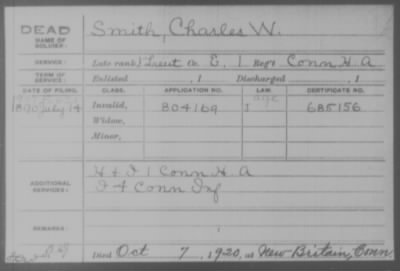 DEAD
NAME OF SOLDIER:
Smith, Charles W.
SERVICE:
Late rank, Lieut Co. E, 1 Reg't Conn H. A
TERM OF SERVICE:
Enlisted , 1 Discharged , 1
DATE OF FILING. CLASS. APPLICATION NO. LAW. CERTIFICATE NO.
1890 July 14 Invalid, 804169 age 685156
Widow,
Minor,
ADDITIONAL SERVICES:
H & I 1 Conn H. A
I 4 Conn Inf
REMARKS:
Died Oct 7, 1920, at New Britain, Conn